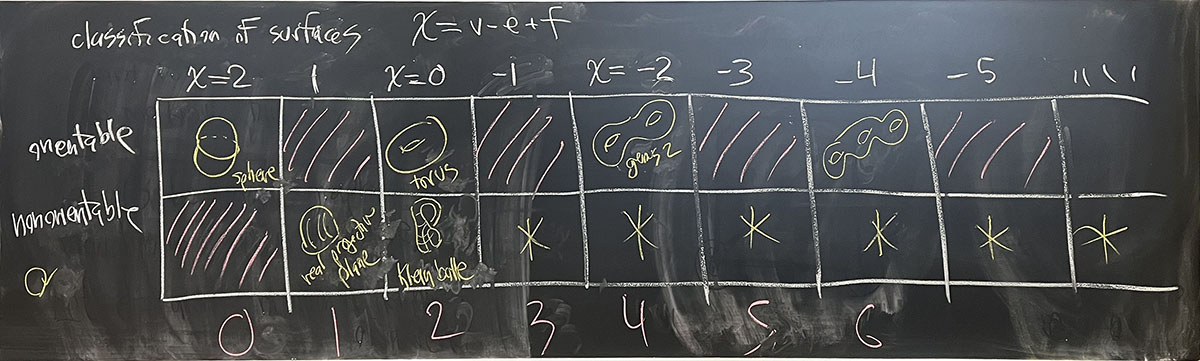 classification of surfaces χ = v - e + f
χ=2 1 χ=0 -1 χ= -2 -3 -4 -5 ....
orientable
sphere torus genus 2
nonorientable
real projective plane
klein bottle
0 1 2 3 4 5 6